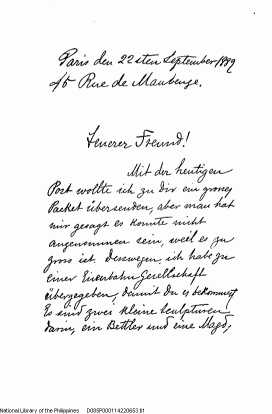 Paris den 22sten September 1889
45 Rue de Maubeuge.
Teuerer Freund!
Mit der heutigen
Post wollte ich zu Dir ein grosses
Packet übersenden, aber man hat
mir gesagt es konnte nicht
angenommen sein, weil es zu
gross ist. Desswegen, ich habe zu
einer Eisenbahn Gesellschaft
übergegeben, damit Du es bekommst
Es sind zwei kleine Sculpturen
darin, ein Bettler und eine Magd,
National Library of the Philippines D00SP00011422065531